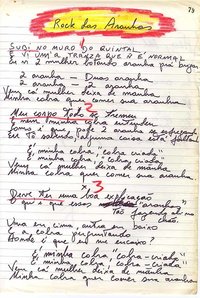 79
Rock das Aranhas
SUBI NO MURO DO QUINTAL
E VI UMA TRANZA QUE Ñ É NORMAL
Eu vi 2 mulher botando aranha prá brigar
2 aranha - Duas aranha
2 aranha - 2 aranha
Vem cá mulher deixa de manha
Minha cobra quer comer sua aranha
2
Meu corpo todo se tremeu
E nem minha cobra entendeu
Como é que pode 2 aranha se esfregando
Eu tô sabendo alguma coisa tá faltando
É, minha cobra, "cobra criada"
É, minha cobra, "cobra criada"
Vem cá mulher deixa de manha
Minha cobra quer comer sua aranha
3
Deve ter uma boa explicação
O que é que essas aranha
Tão fazendo ali no chão.
Uma em cima, outra em baixo
E a cobra perguntando
Aonde é que eu me encaixo?
É, minha cobra, "cobra-criada"
É, minha cobra, "cobra criada"
Vem cá mulher deixa de manha
Minha cobra quer comer sua aranha